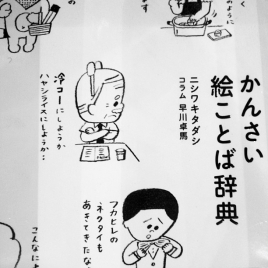 かんさい
絵ことば辞典
ニシワキタダシ
コラム 早川卓馬
のように
ます
冷コーにしようか
ハヤシライスにしようか…
フカヒレの
ネクタイも
あきてきたな
こんなに